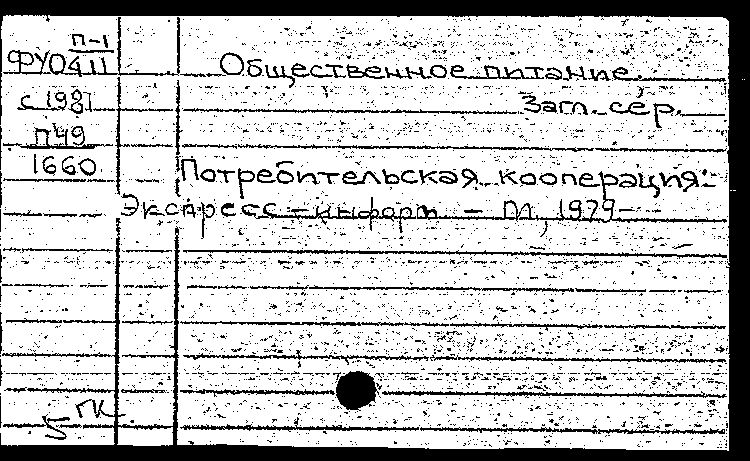 П-1
ФУ0411
с 1981
П49
1660
Общественное питание.
Заг. сер.
Потребительская кооперация:
Экспресс-информ. – М., 1979-
5 ГК